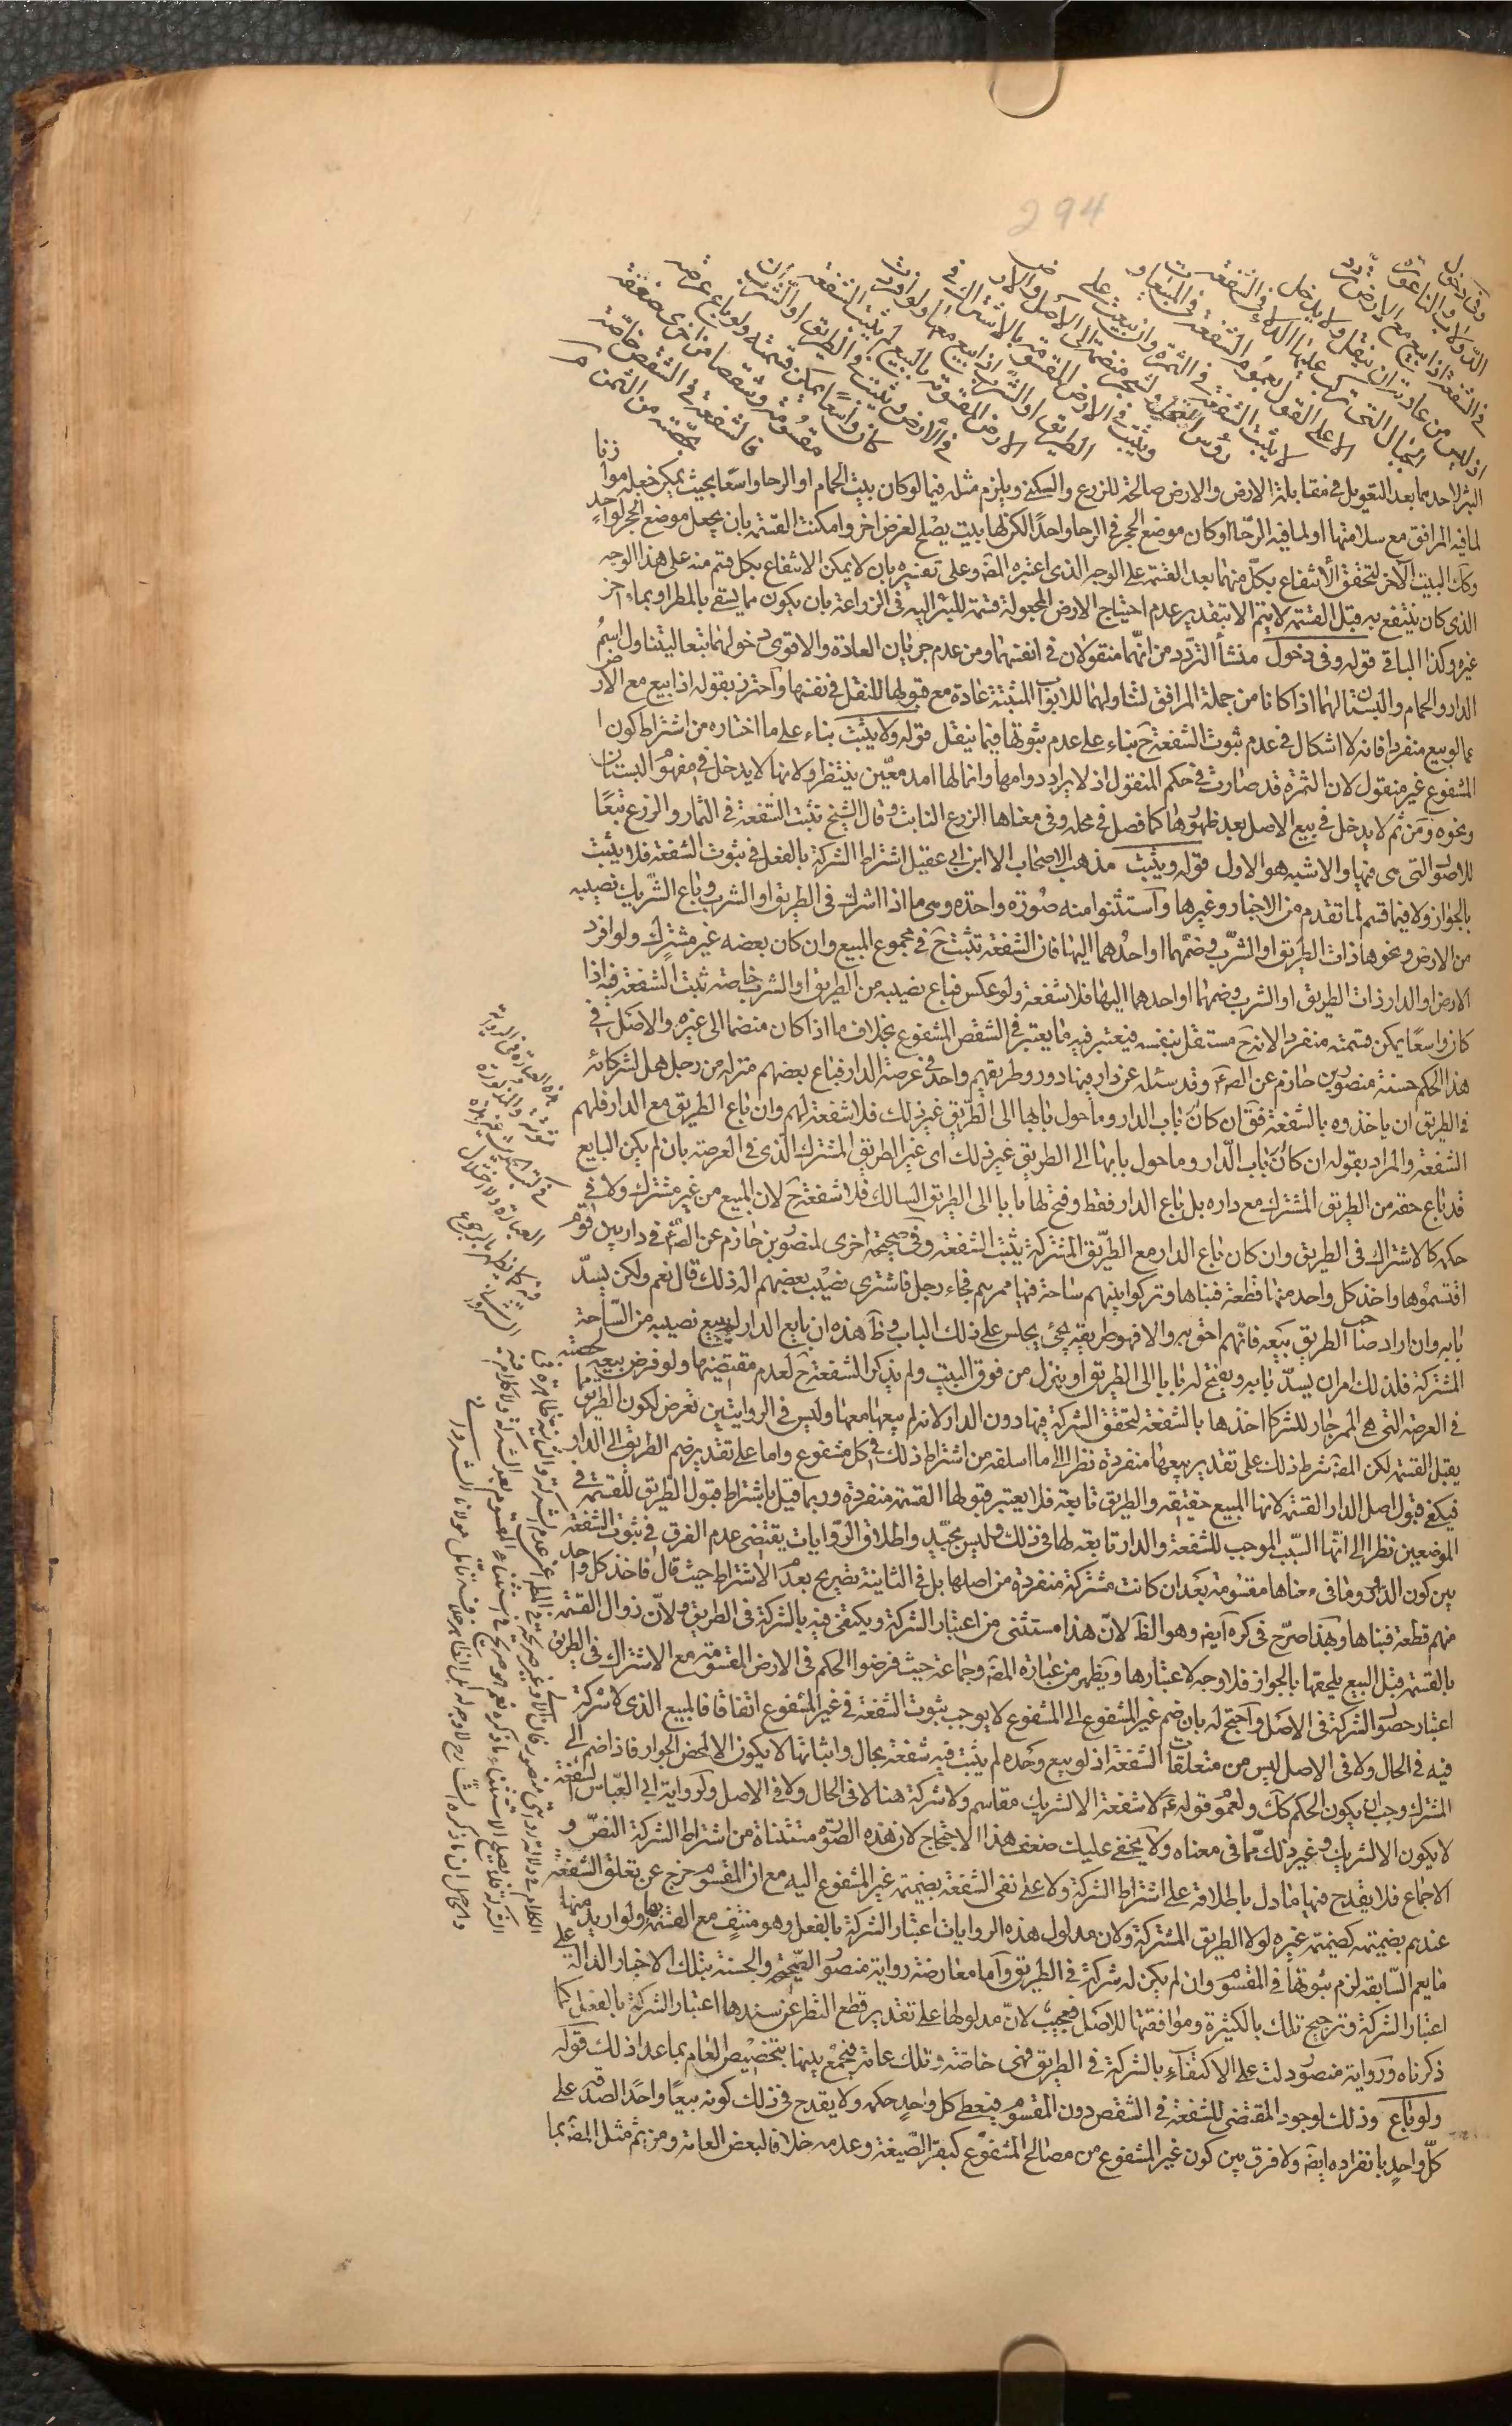 294
وفي دخول
الدولاب والناعورة
في الشفعة اذا بيع مع الارض تردد
اذ ليس من عادته ان ينقل ولا يدخل
الحبال التي تركب عليها الدلاء في الشفعة
الا على القول بعموم الشفعة في المبيعات و
لا يثبت الشفعة في الثمرة وان بيعت على
رؤس النخل والشجر منضمة الى الاصل والارض
ويثبت في الارض المقسومة بالاشتراك في
الطريق او الشرب اذا بيع معها ولو افردت
الارض المقسومة بالبيع لم يثبت الشفعة
في الارض ويثبت في الطريق او الشرب ان
كان واسعا يمكن قسمته ولو باع عرصة
مقسومة وشقصا من اخرى صفقة
فالشفعة في الشقص خاصة
بحصته من الثمن
البئر لاحدهما بعد التعويل في مقابلة الارض والارض صالحة للزرع والسكنى ويلزم مثله فيما لو كان بيت الحمام او الرحا واسعا بحيث يمكن جعله موازنا
لما فيه المرافق مع سلامتها او لما فيه الرحا او كان موضع الحجر في الرحا واحدا لكن لها بيت يصلح لغرض اخر وامكنت القسمة بان يجعل موضع الحجر لواحد
وكان البيت الآخر لتحقق الانتفاع بكل منهما بعد القسمة على الوجه الذي اعتبره المصه وعلى تفسيره بان لا يمكن الانتفاع بكل قسم منه على هذا الوجه
الذي كان ينتفع به قبل القسمة لا يتم الا بتقدير عدم احتياج الارض المجعولة قسمة للبئر اليه في الزراعة بان يكون مما يسقى بالمطر او بماء اخر
غيره وكذا الباقي قوله وفي دخول منشأ التردد من انهما منقولان في انفسهما ومن عدم جريان العادة والاقوى دخولهما تبعا ليتناول اسم
الدار والحمام والبستان لهما اذا كانا من جملة المرافق لتناولهما للابواب المثبتة عادة مع قبولها للنقل في نفسها واحترز بقوله اذا بيع مع الارض
عما لو بيع منفردا فانه لا اشكال في عدم ثبوت الشفعة ح بناء على عدم ثبوتها فيما ينقل قوله ولا يثبت بناء على ما اختاره من اشتراط كون
المشفوع غير منقول لان الثمرة قد صارت في حكم المنقول اذ لا يراد دوامها وانما لها امد معين ينتظر ولانها لا يدخل في مفهوم البستان
ونحوه ومن ثم لا يدخل في بيع الاصل بعد ظهورها كما فصل في محله وفي معناها الزرع النابت وقال الشيخ تثبت الشفعة في الثمار والزرع تبعا
للاصول التي هي فيها والاشبه هو الاول قوله ويثبت مذهب الاصحاب الا ابن ابي عقيل اشتراط الشركة بالفعل في ثبوت الشفعة فلا يثبت
بالجوار ولا فيما قسم لما تقدم من الاخبار وغيرها واستثنوا منه صورة واحدة وهي ما اذا اشترك في الطريق او الشرب وباع الشريك نصيبه
من الارض ونحوها ذات الطريق او الشرب وضمهما او احدهما اليها فان الشفعة تثبت ح في مجموع المبيع وان كان بعضه غير مشترك ولو افرد
الارض او الدار ذات الطريق او الشرب وضمهما او احدهما اليها فلا شفعة ولو عكس فباع نصيبه من الطريق او الشرب خاصة ثبت الشفعة فيه اذا
كان واسعا يمكن قسمته منفردا لانه ح مستقل بنفسه فيعتبر فيه ما يعتبر في الشقص المشفوع بخلاف ما اذا كان منضما الى غيره والاصل في
هذا الحكم حسنة منصور بن حازم عن الصه ع وقد سئله عن دار فيها دور وطريقهم واحد في عرصة الدار فباع بعضهم منزله من رجل هل لشركائه
في الطريق ان ياخذوه بالشفعة فق ان كان باب الدار وما حول بابها الى الطريق غير ذلك فلا شفعة لهم وان باع الطريق مع الدار فلهم
الشفعة والمراد بقوله ان كان باب الدار وما حول بابها الى الطريق غير ذلك اى غير الطريق المشترك الذي في العرصة بان لم يكن البايع
قد باع حقه من الطريق المشترك مع داره بل باع الدار فقط وفتح لها بابا الى الطريق السالك فلا شفعة ح لان المبيع من غير مشترك ولا في
حكمه كالاشتراك في الطريق وان كان باع الدار مع الطريق المشتركة يثبت الشفعة وفي صحيحة اخرى لمنصور بن حازم عن الصه ع في دار بين قوم
اقتسموها واخذ كل واحد منها قطعة فبناها وتركوا بينهم ساحة فيها ممرهم فجاء رجل فاشترى نصيب بعضهم اله ذلك قال نعم ولكن يسد
بابه وان اراد صاحب الطريق بيعه فانهم احق به والا فهو طريقه يجئ يجلس على ذلك الباب وظ هذه ان بايع الدار لم يبيع نصيبه من الساحة
المشتركة فلذلك امر ان يسد بابه ويفتح له بابا الى الطريق او ينزل من فوق البيت ولم يذكر الشفعة ح لعدم مقتضيها ولو فرض بيعه حصته
في العرصة التي هي الممر جاز للشركا اخذها بالشفعة لتحقق الشركة فيها دون الدار لانه لم يبعها معها وليس في الروايتين تعرض لكون الطريق مما
يقبل القسمة لكن المصه شرط ذلك على تقدير بيعها منفردة نظرا الى ما اسلفه من اشتراط ذلك في كل مشفوع واما على تقدير ضم الطريق الى الدار
فيكفي قبول اصل الدار القسمة لانها المبيع حقيقة والطريق تابعة فلا يعتبر قبولها القسمة منفردة وربما قيل باشتراط قبول الطريق للقسمة في
الموضعين نظرا الى انها السبب الموجب للشفعة والدار تابعة لها في ذلك وليس بجيد واطلاق الروايات يقتضى عدم الفرق في ثبوت الشفعة
بين كون الدور وما في معناها مقسومة بعد ان كانت مشتركة منفردة من اصلها بل في الثانية تصريح بعدم الاشتراط حيث قال فاخذ كل واحد
منهم قطعة فبناها وبهذا صرح في كره ايضه وهو الظ لان هذا مستثنى من اعتبار الشركة ويكتفى فيه بالشركة في الطريق ولان زوال القسمة
بالقسمة قبل البيع يلحقها بالجوار فلا وجه لاعتبارها ويظهر من عبارة المصه وجماعة حيث فرضوا الحكم في الارض المقسومة مع الاشتراك في الطريق
اعتبار حصول الشركة في الاصل واحتج له بان ضم غير المشفوع الى المشفوع لا يوجب ثبوت الشفعة في غير المشفوع اتفاقا فالمبيع الذي لا شركة
فيه في الحال ولا في الاصل ليس من متعلقات الشفعة اذ لو بيع وحده لم يثبت فيه شفعة بحال واثباتها لا يكون الا لمحض الجوار فاذا ضم الى
المشترك وجب ان يكون الحكم كك ولعموم قوله ع لا شفعة الا لشريك مقاسم ولا شركة هنا لا في الحال ولا في الاصل ولرواية ابي العباس الشفعة
لا يكون الا لشريك وغير ذلك مما في معناه ولا يخفى عليك ضعف هذا الاحتجاج لان هذه الصورة مستثناة من اشتراط الشركة النص و
الاجماع فلا يقدح فيها ما دل باطلاقه على اشتراط الشركة ولا على نفى الشفعة بضميمة غير المشفوع اليه مع ان المقسوم خرج عن تعلق الشفعة
عندهم بضميمته كضميمة غيره لولا الطريق المشتركة ولان مدلول هذه الروايات اعتبار الشركة بالفعل وهو منتف مع القسمة ولو اريد بها منها
ما يعم السابقة لزم ثبوتها في المقسوم وان لم يكن له شركة في الطريق واما معارضة رواية منصور الصحيحة والحسنة بتلك الاخبار الدالة على
اعتبار الشركة وترجيح تلك بالكثرة وموافقتها للاصل فعجيب لان مدلولها على تقدير قطع النظر عن سندها اعتبار الشركة بالفعل كما
ذكرناه ورواية منصور دلت على الاكتفاء بالشركة في الطريق فهي خاصة وتلك عامة فيجمع بينها بتخصيص العام بما عدا ذلك قوله
ولو باع وذلك لوجود المقتضى للشفعة في الشقص دون المقسوم فيعطى كل واحد حكمه ولا يقدح في ذلك كونه بيعا واحدا لصدقه على
كل واحد بانفراده ايضه ولا فرق بين كون غير المشفوع من مصالح المشفوع كبقر الضيعة وعدمه خلافا لبعض العامة ومن ثم مثل المصه بما